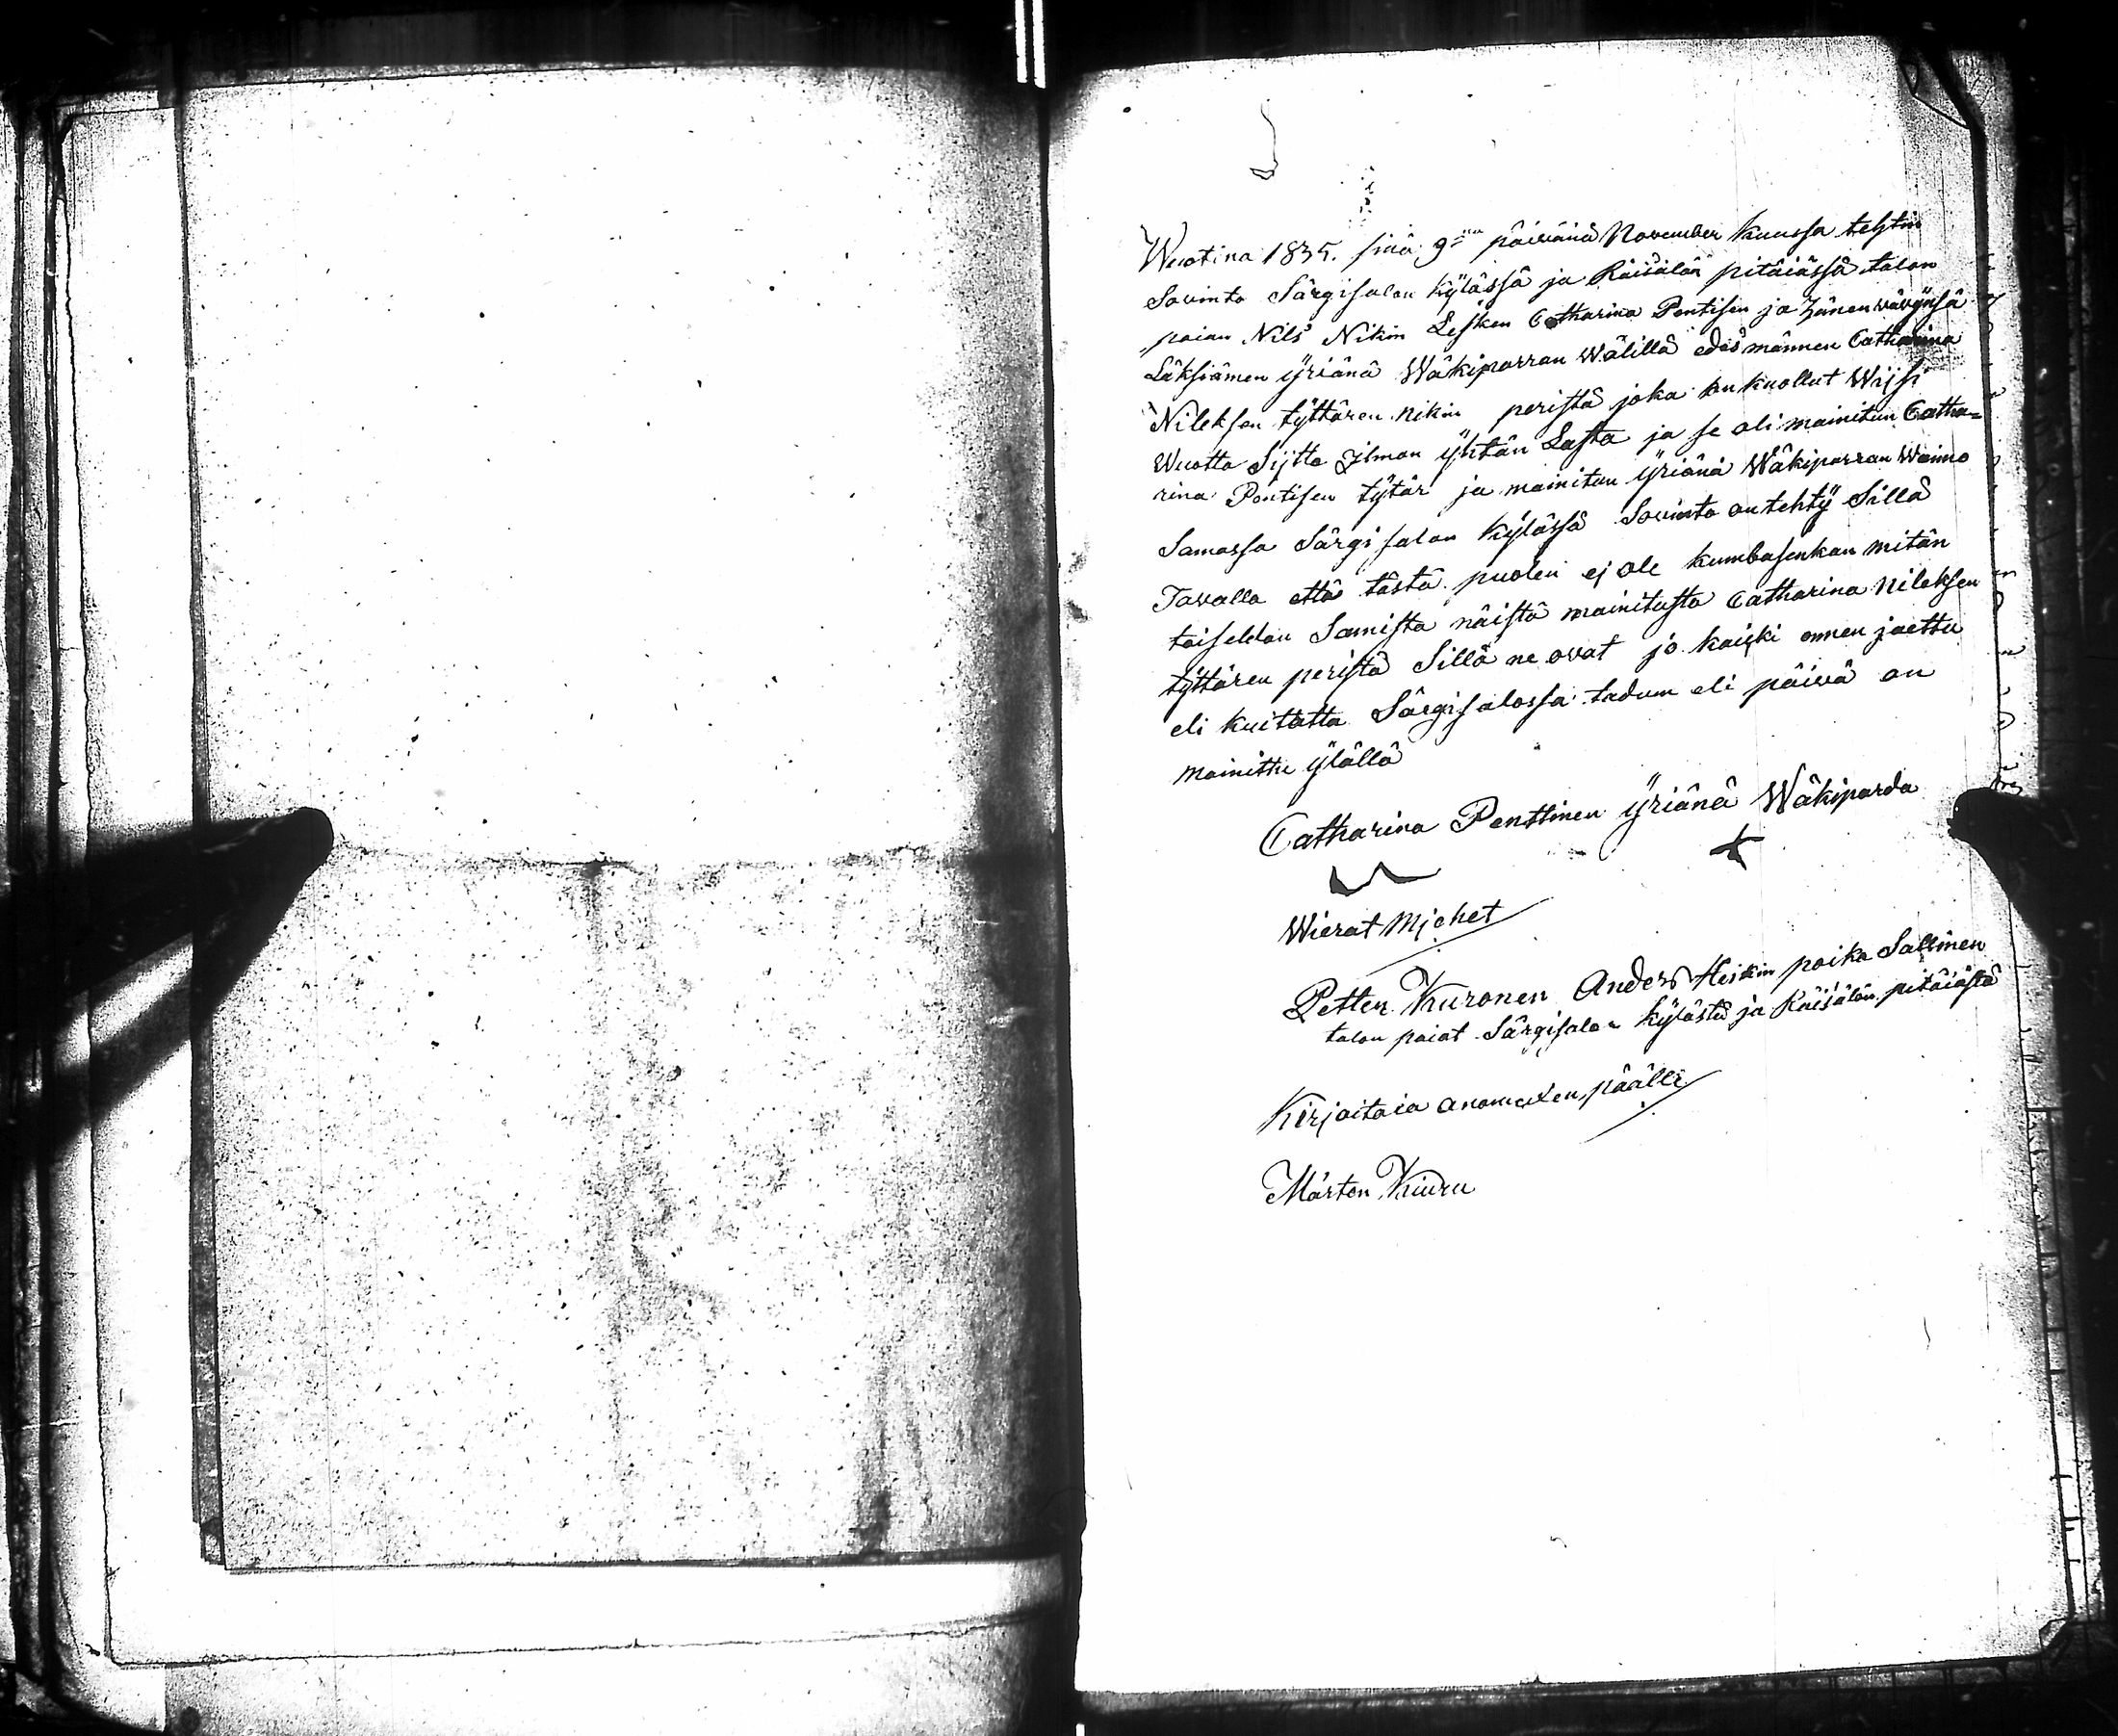 Wuotina 1835. sinä 9:nä päivänä November kuussa tehtin
Sovinto Särgisalon kÿlässä ja Räisälän pitäiässä talon
poian Nils Nikin Lesken Catharina Pentisen ja hänen vävynsä
Läksiämen ÿriänä Wäkiparran wälillä edes männen Catharina
Nileksen tÿttären Nikin peristä joka on kuollut Wijsi
Wuotta Sijtte Jlman ÿhtän Lasta ja se oli mainitun Catha=
rina Pentisen tÿtär ja mainitun ÿriänä Wäkiparran Waimo
Samassa Särgisalon kÿlässä Sovinto on tehtÿ Sillä
Tavalla että tästä puolen ej ole kumbasenkan mitän
toiseldan Samista näistä mainitusta Catharina Nileksen
tÿttären peristä Sillä ne ovat jo kaicki ennen jaettu
eli kuitatta Särgisalossa tadum eli päivä on
mainittu ÿlällä
Catharina Penttinen ÿriänä Wäkiparda
Wierat Mjehet
Petter Kuronen Anders Heikin poika Sallinen
talon poiat Särgisalon kÿlästä ja Räisälän pitäiästä
Kirjoitaia anomuxen päälle
Mårten Kiuru